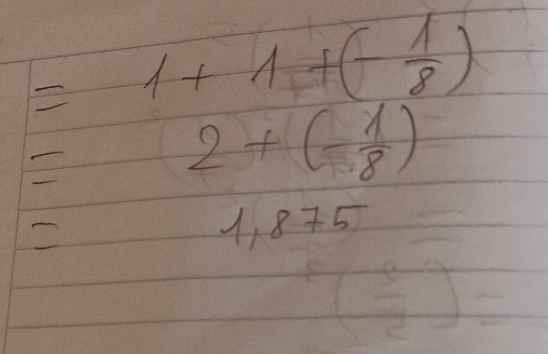 = 1 + 1 + (- 1/8)
= 2 + (- 1/8)
= 1,875